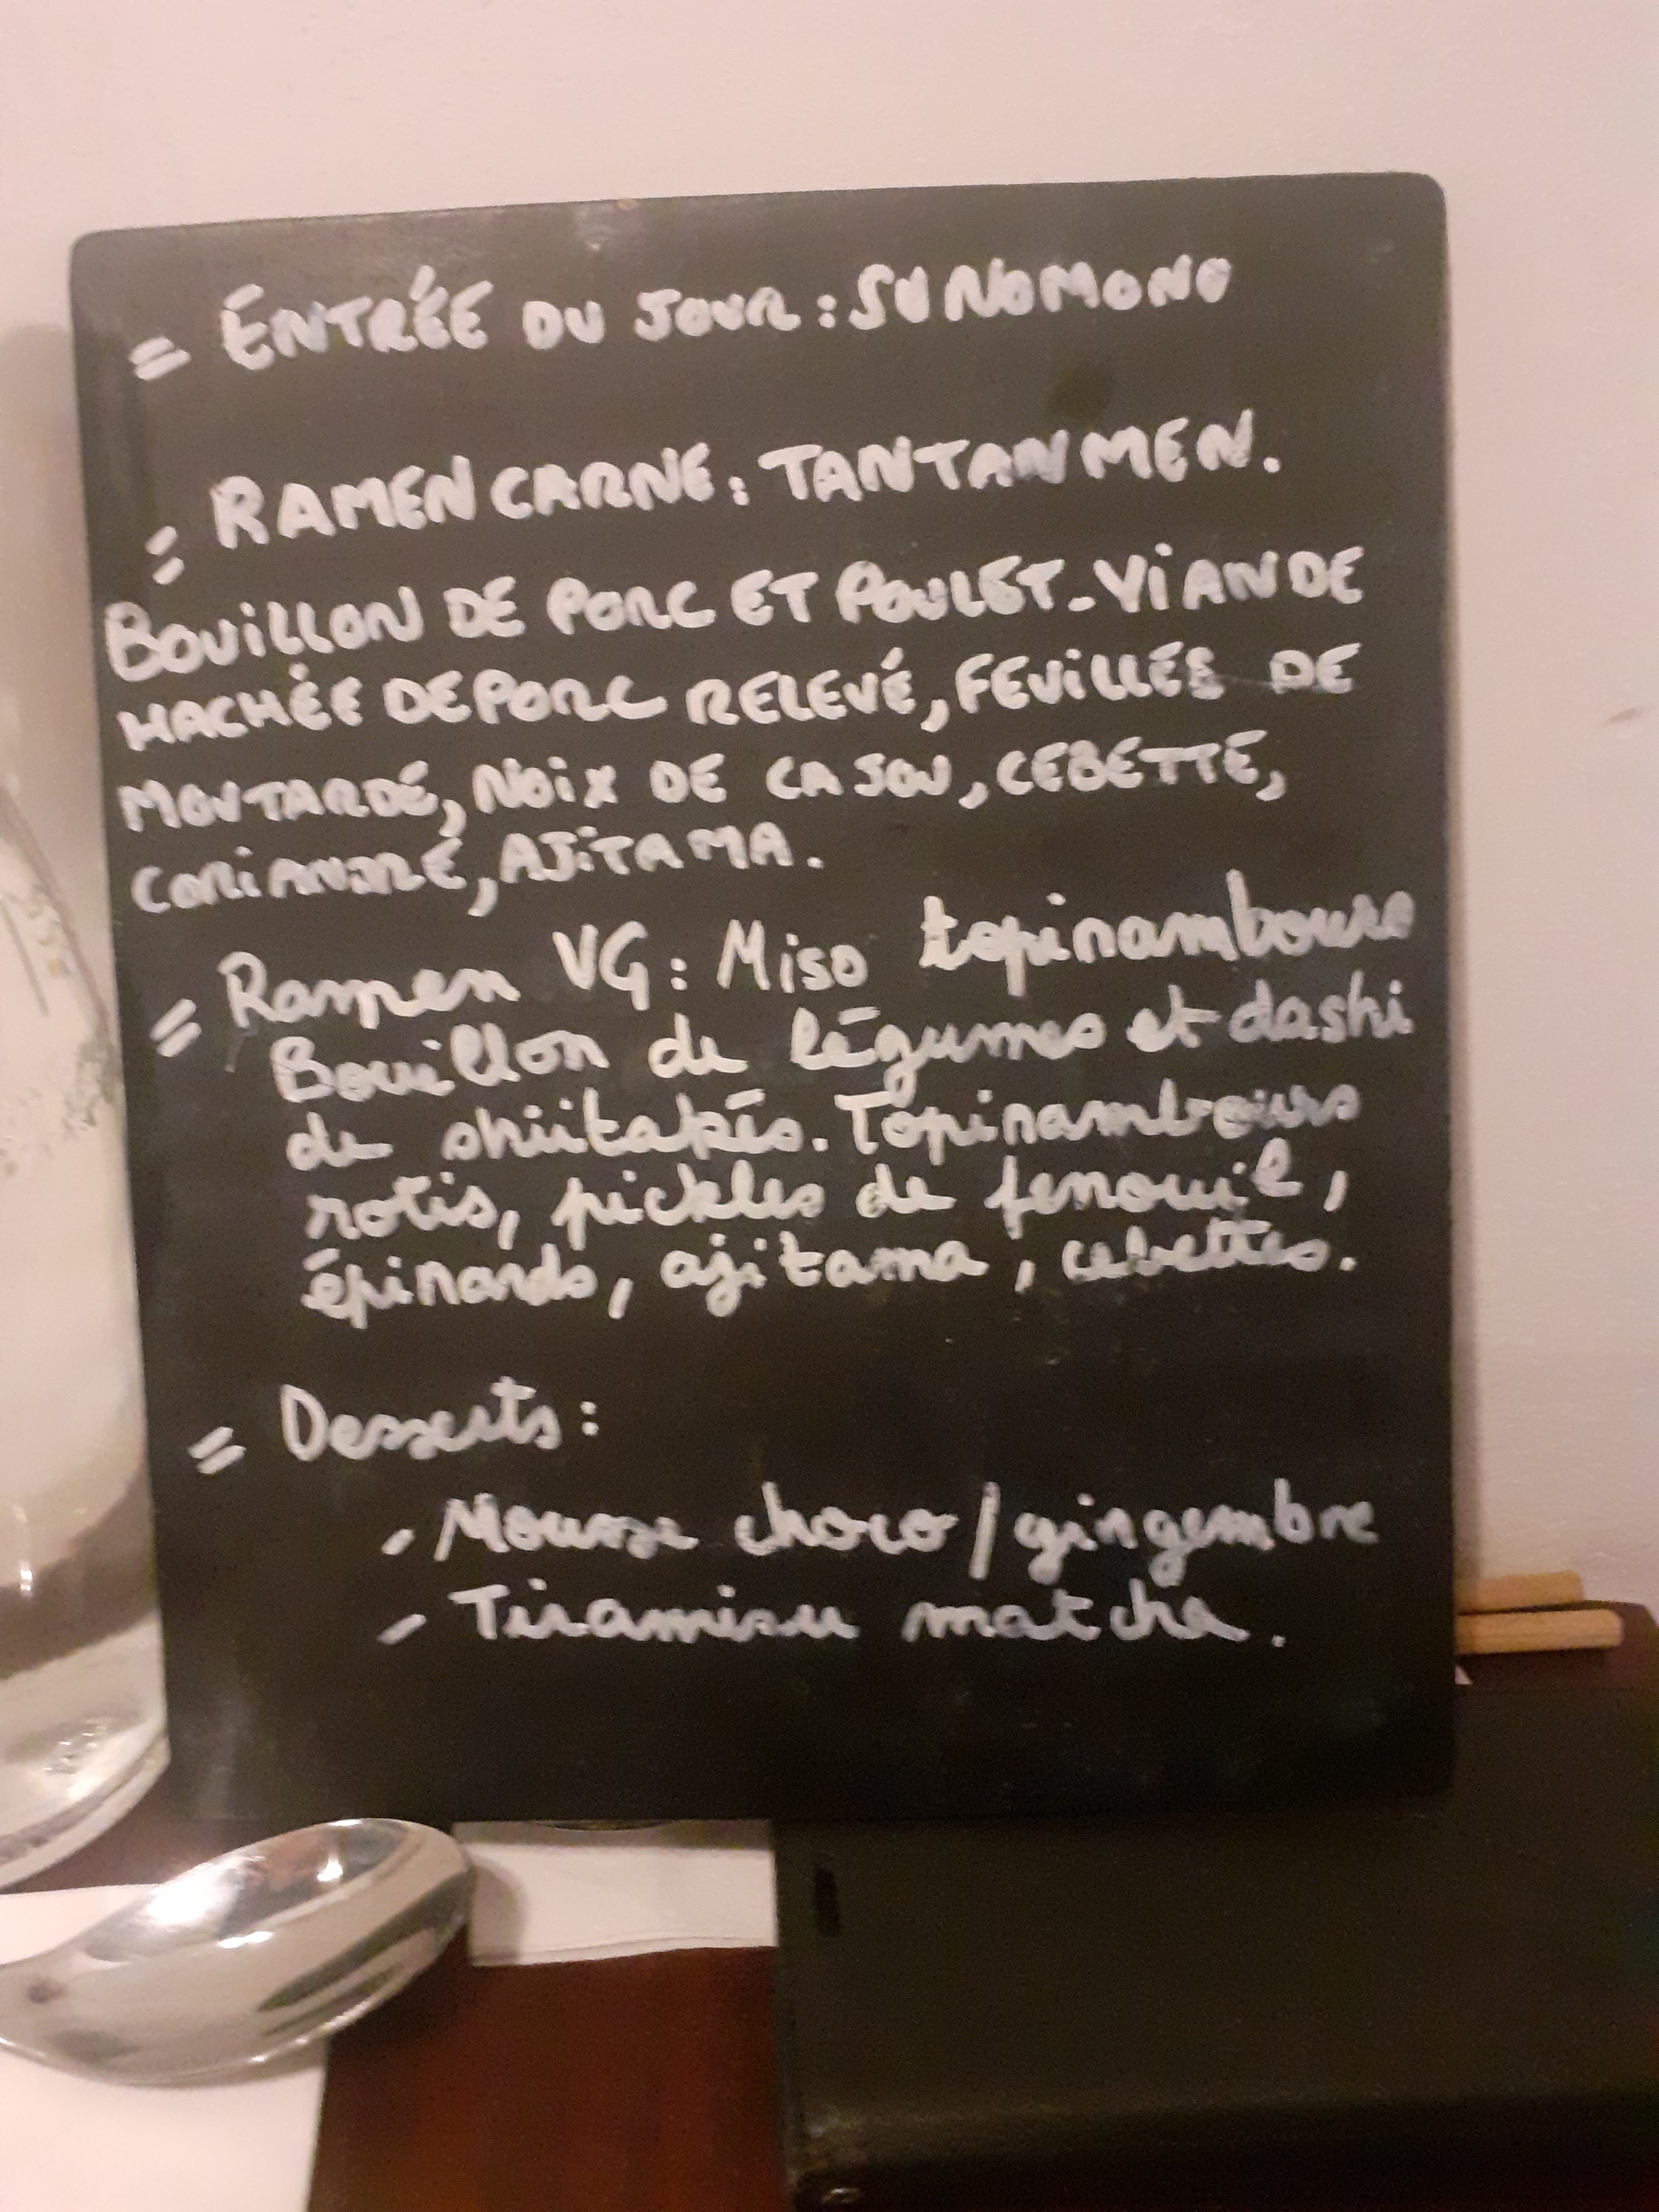 = ENTRÉE DU JOUR : SUNOMONO
= RAMEN CARNE : TANTANMEN.
BOUILLON DE PORC ET POULET - VIANDE
HACHÉE DE PORC RELEVÉ, FEUILLES DE
MOUTARDE, NOIX DE CAJOU, CEBETTE,
CORIANDRE, AJITAMA.
= Ramen VG : Miso topinambours
Bouillon de légumes et dashi
de shiitakés. Topinambours
rotis, pickles de fenouil,
épinards, ajitama, cebettes.
= Desserts :
- Mousse choco / gingembre
- Tiramisu matcha.